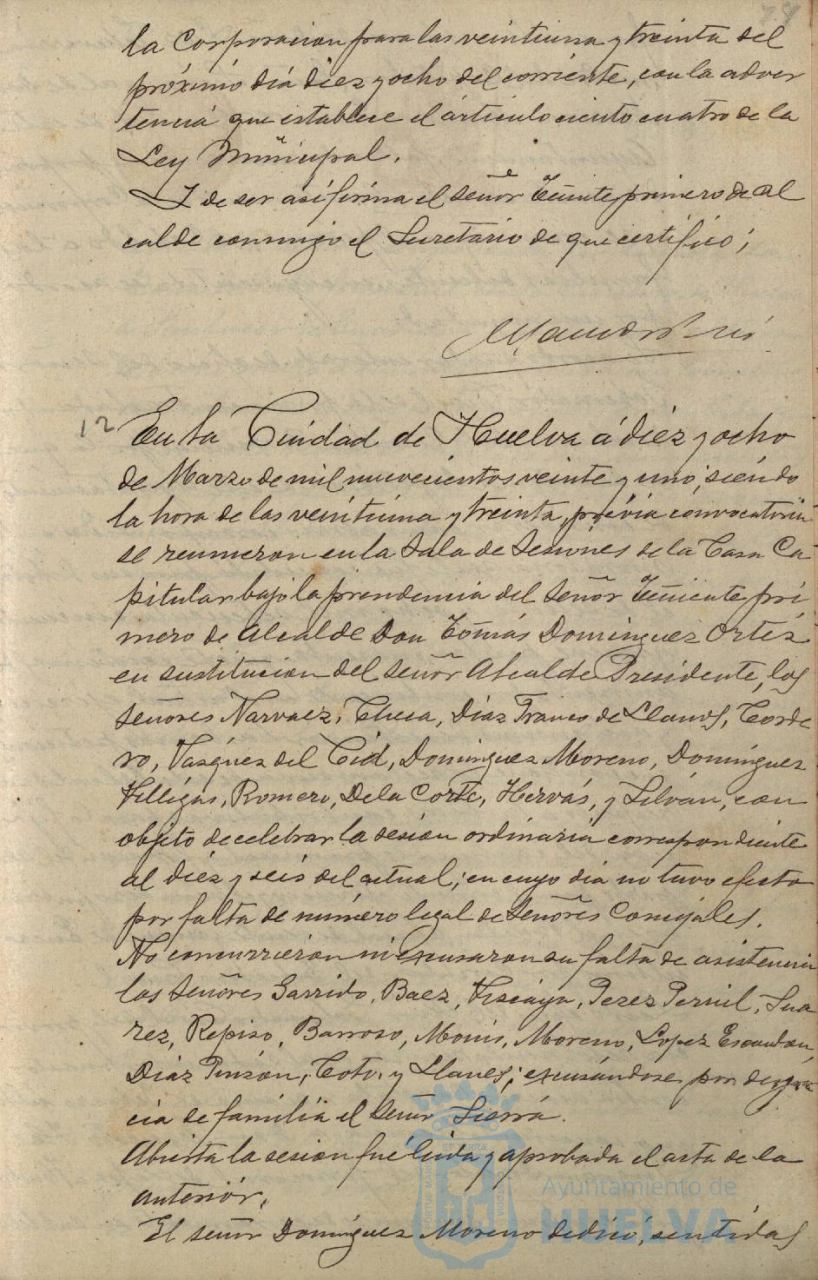 la Corporacion para las veintiuna y treinta del
próximo día diez y ocho del corriente, con la adver
tencia que establece el articulo ciento cuatro de la
Ley Municipal.
Y de ser asi firma el señor Teniente primero de Al
calde conmigo el Secretario de que certifico;
12 En la Ciudad de Huelva á diez y ocho
de Marzo de mil nuevecientos veinte y uno, siendo
la hora de las veintiuna y treinta, prévia convocatoria
se reunieron en la Sala de Sesiones de la Casa Ca
pitular bajo la presidencia del Señor Teniente pri
mero de Alcalde Don Tomás Dominguez Ortiz
en sustitucion del señor Alcalde Presidente, los
Señores Narvaez, Checa, Díaz Franco de Llanos, Corde
ro, Vasquez del Cid, Dominguez Moreno, Domínguez
Villegas, Romero, De la Corte, Hervás, y Silván, con
objeto de celebrar la sesion ordinaria correspondiente
al diez y seis del actual, en cuyo dia no tuvo efecto
por falta de número legal de Señores Concejales.
No concurrieron ni excusaron su falta de asistencia
los Señores Garrido, Baez, Viscaya, Perez Pernil, Sua
rez, Repiso, Barroso, Monis, Moreno, Lopez Escandon,
Díaz Pinzon, Coto, y Llanes; excusándose por desgra
cia de familia el Señor Sierra.
Abierta la sesion fué leida y aprobada el acta de la
anterior.
El señor Domínguez Moreno dedicó, sentidas
Ayuntamiento de
HUELVA